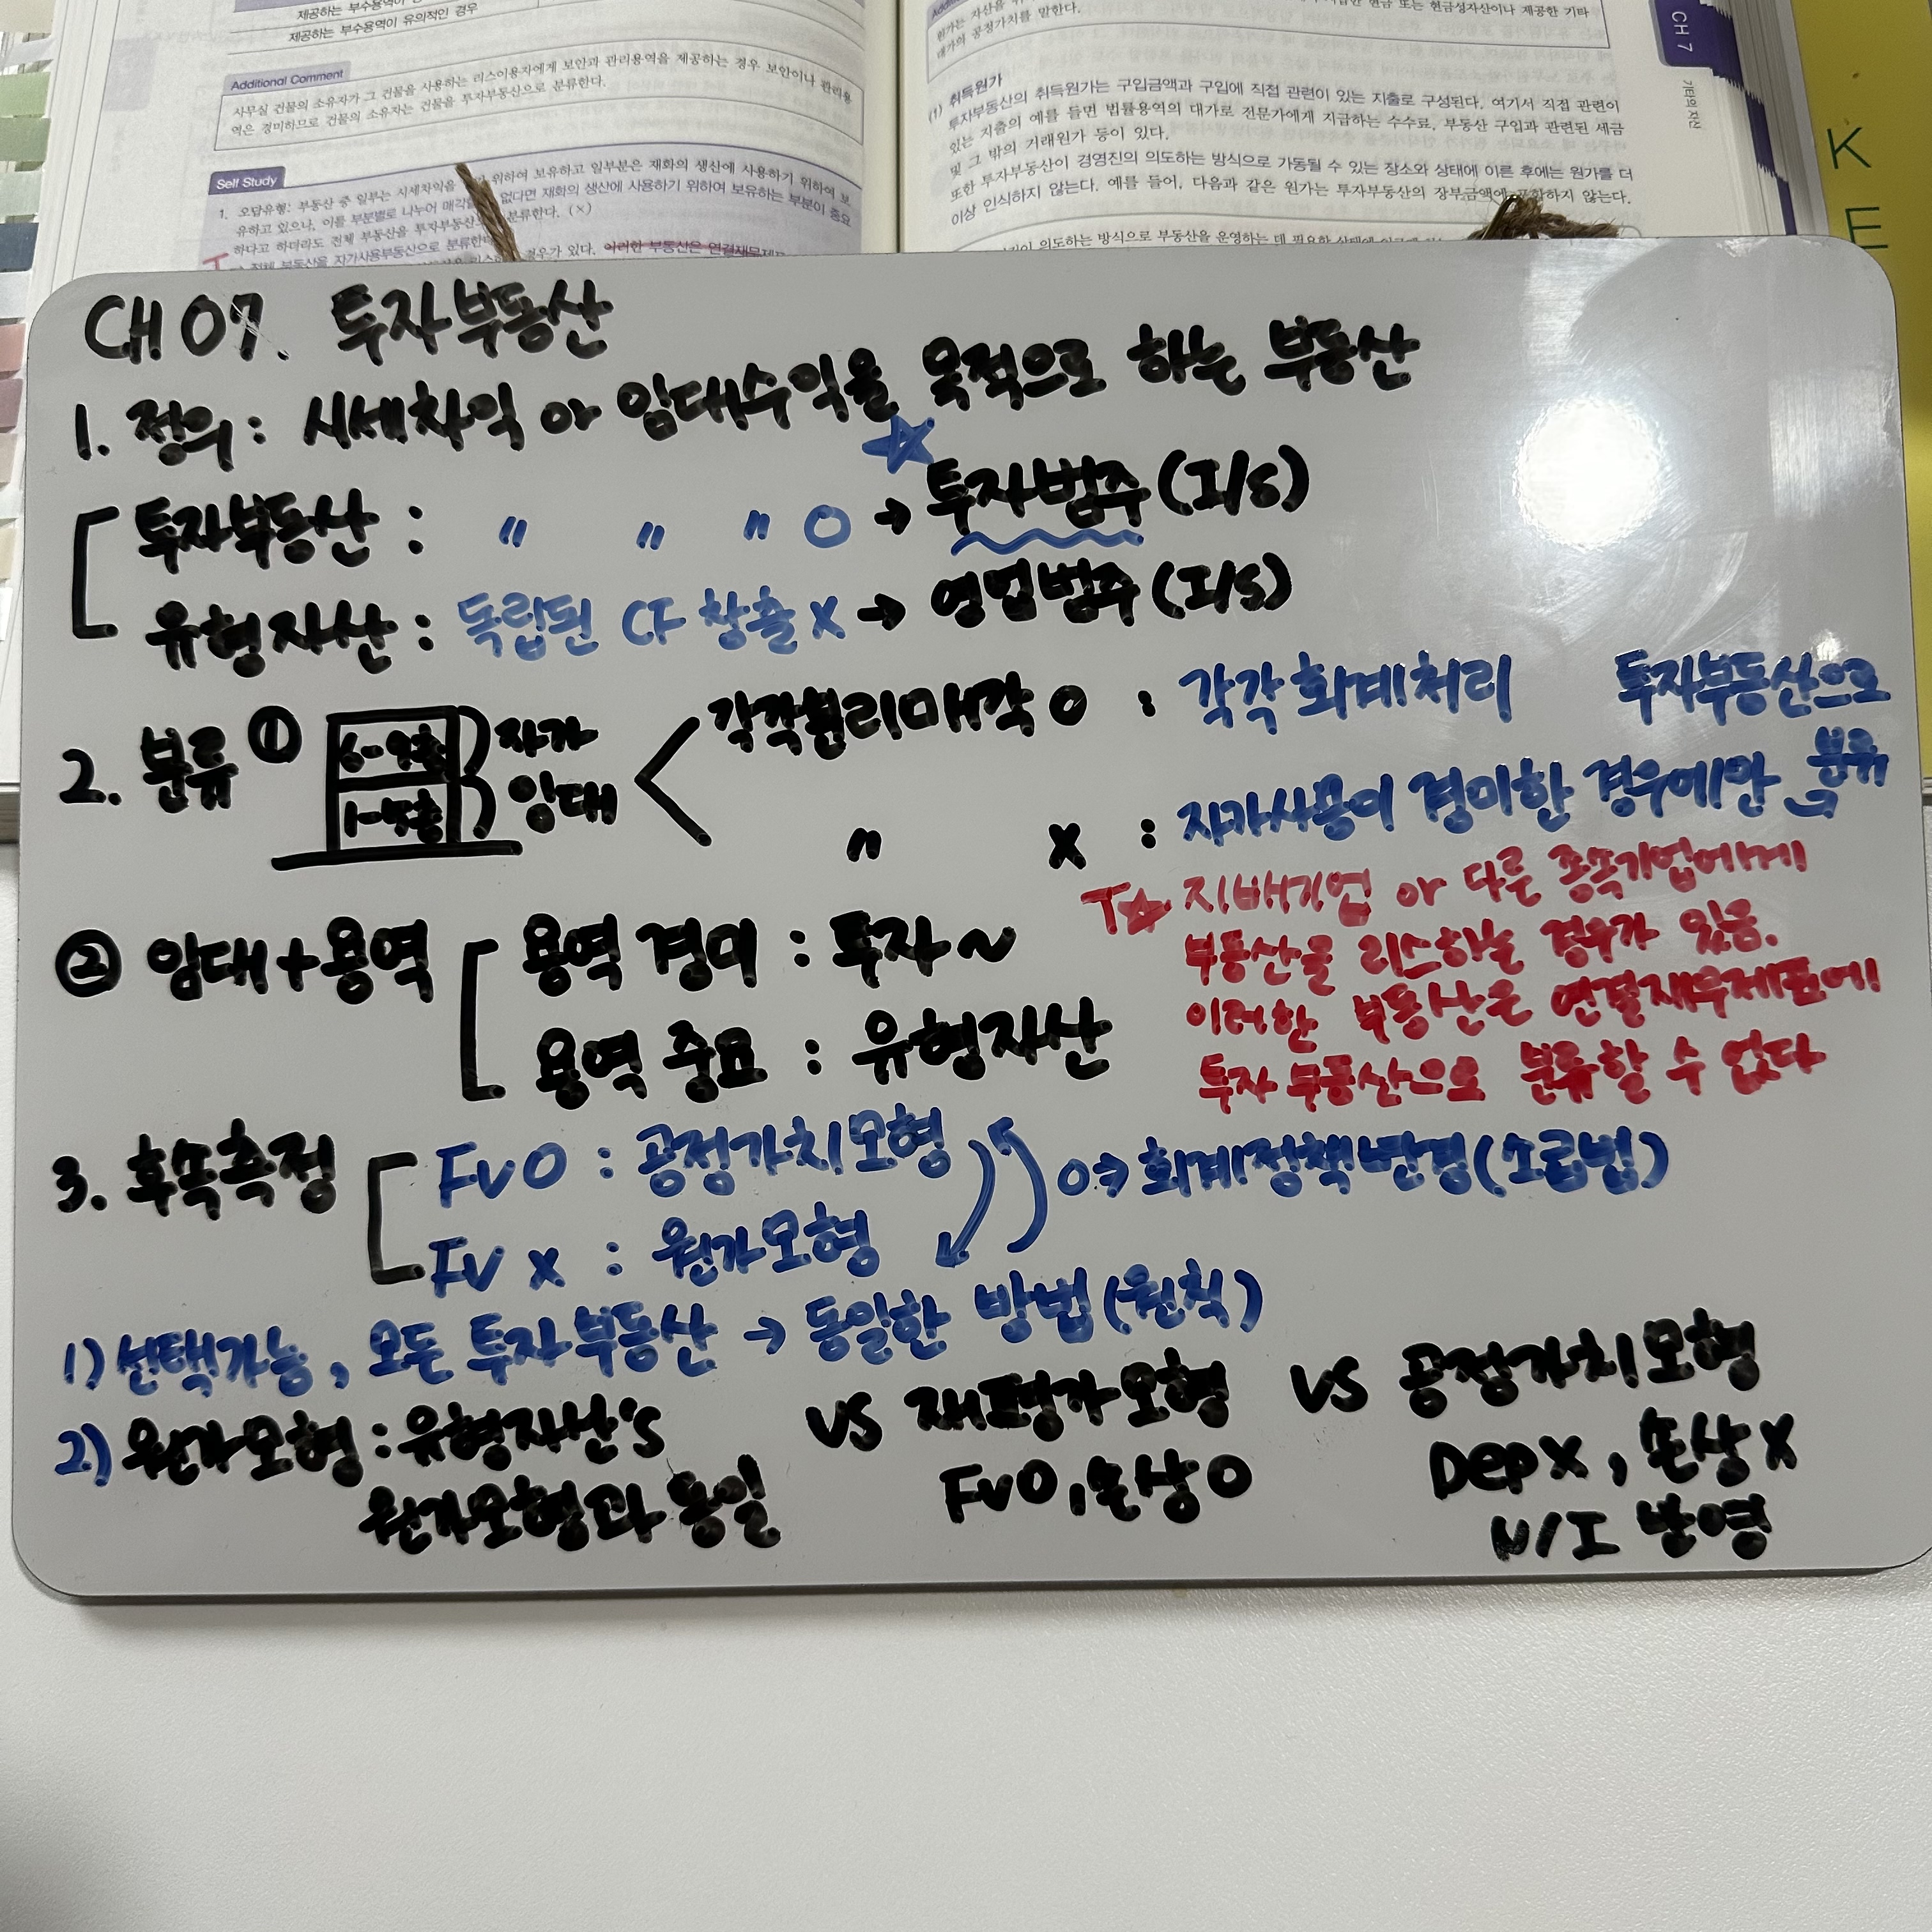 제공하는 부수용역이 유의적인 경우
Additional Comment
사무실 건물의 소유자가 그 건물을 사용하는 리스이용자에게 보안과 관리용역을 제공하는 경우 보안이나 관리용
역은 경미하므로 건물의 소유자는 건물을 투자부동산으로 분류한다.
Self Study
1. 오답유형: 부동산 중 일부는 시세차익을 위하여 보유하고 일부분은 재화의 생산에 사용하기 위하여 보
유하고 있으나, 이를 부분별로 나누어 매각 없다면 재화의 생산에 사용하기 위하여 보유하는 부분이 중요
하다고 하더라도 전체 부동산을 투자부동산 분류한다. (×)
전체 부동산을 자가사용부동산으로 분류한 경우가 있다. 이러한 부동산은 연결재무제
대가의 공정가치를 말한다.
(1) 취득원가
투자부동산의 취득원가는 구입금액과 구입에 직접 관련이 있는 지출로 구성된다. 여기서 직접 관련이
있는 지출의 예를 들면 법률용역의 대가로 전문가에게 지급하는 수수료, 부동산 구입과 관련된 세금
및 그 밖의 거래원가 등이 있다.
또한 투자부동산이 경영진의 의도하는 방식으로 가동될 수 있는 장소와 상태에 이른 후에는 원가를 더
이상 인식하지 않는다. 예를 들어, 다음과 같은 원가는 투자부동산의 장부금액에 포함하지 않는다.
의도하는 방식으로 부동산을 운영하는 데 필요한 상태에
CH 7
기타의 자산
K
E
CH 07. 투자부동산
1. 정의: 시세차익 or 임대수익을 목적으로 하는 부동산
투자부동산 : 〃 〃 〃 O → 투자범주 (I/S)
유형자산 : 독립된 CF 창출 X → 영업범주 (I/S)
2. 분류 ① 6-9층 자가
1-5층 임대
각각 분리매각 O : 각각 회계처리
〃 X : 자가사용이 경미한 경우에만 투자부동산으로 분류
T☆ 지배기업 or 다른 종속기업에게
부동산을 리스하는 경우가 있음.
이러한 부동산은 연결재무제표에
투자부동산으로 분류할 수 없다
② 임대+용역 용역 경미 : 투자~
용역 중요 : 유형자산
3. 후속측정 FV O : 공정가치모형
FV X : 원가모형
O→ 회계정책변경(소급법)
1) 선택가능, 모든 투자부동산 → 동일한 방법(원칙)
2) 원가모형 : 유형자산's VS 재평가모형 VS 공정가치모형
원가모형과 동일 FVO, 손상O Dep X, 손상 X
N/I 반영